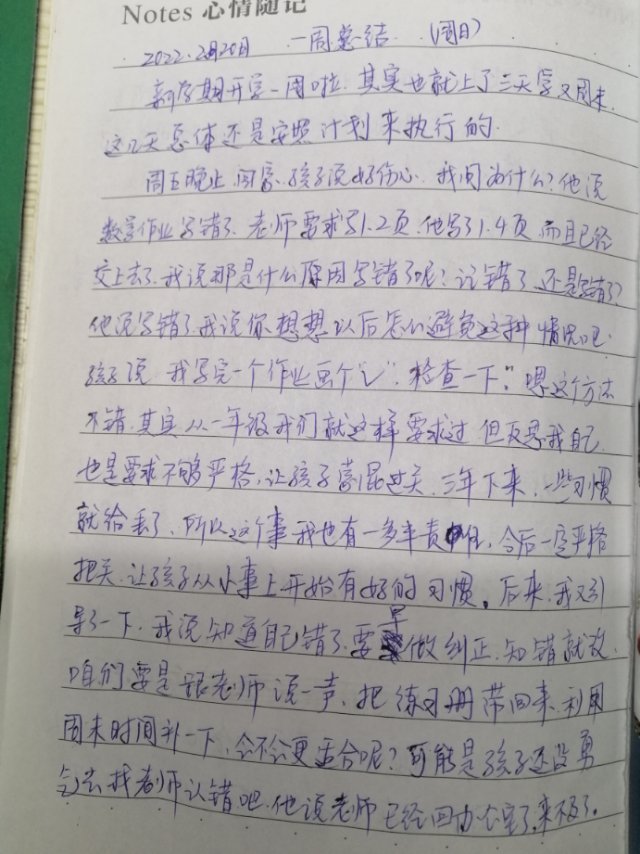 Notes 心情随记
2022.2月20日 一周总结 (周日)
新学期开学一周啦.其实也就上了三天学又周末.
这几天总体还是按照计划来执行的.
周五晚上回家.孩子说好伤心.我问为什么?他说
数学作业写错了.老师要求写1.2页.他写了1.4页而且已经
交上去了.我说那是什么原因写错了呢?记错了还是写错了?
他说写错了.我说你想想以后怎么避免这种情况吧.
孩子说"我写完一个作业画个"√".检查一下".嗯这个方法
不错.其实从一年级我们就这样要求过.但反思我自己.
也是要求不够严格,让孩子蒙混过关.三年下来,一些习惯
就给丢了.所以这个事我也有一多半责任,今后一定严格
把关.让孩子从小事上开始有好的习惯。后来,我又引
导了一下,我说知道自己错了要早做纠正.知错就改.
咱们要是跟老师说一声,把练习册带回来.利用
周末时间补一下,会不会更适合呢?可能是孩子还没勇
气去找老师认错吧.他说老师已经回办公室了,来不及了.